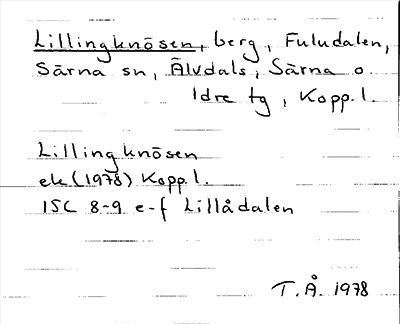 Lillingknösen, berg, Fuludalen,
Särna sn, Älvdals, Särna o
Idre tg, Kopp.l.
Lillingknösen
ek(1978) Kopp.l.
15C 8-9 e-f Lillådalen
T.Å. 1978